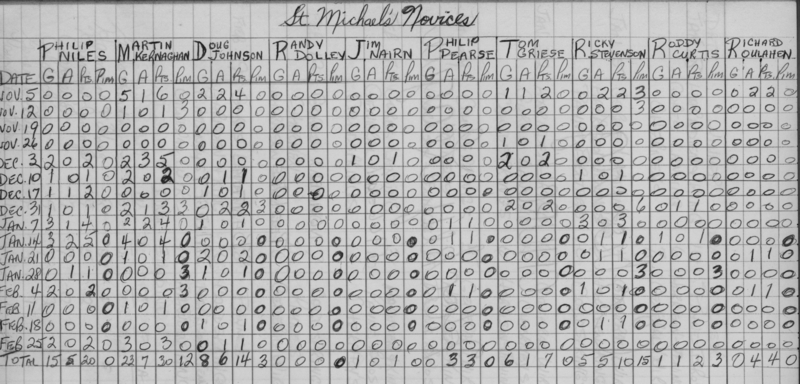 St. Michaels' Novices
PHILIP NILES MARTIN KERNAGHAN DOUG JOHNSON RANDY DOLLEY JIM NAIRN PHILIP PEARSE TOM GRIESE RICKY STEVENSON RODDY CURTIS RICHARD OULAHEN
DATE G A Pts. Pim G A Pts Pim G A Pts Pim G A Pts Pim G A Pts Pim G A Pts Pim G A Pts Pim G A Pts Pim G A Pts Pim G A Pts Pim
NOV. 5 0 0 0 0 5 1 6 0 2 2 4 0 0 0 0 0 0 0 0 0 0 0 0 0 1 1 2 0 0 2 2 3 0 0 0 0 0 2 2 0
NOV. 12 0 0 0 0 1 0 1 3 0 0 0 0 0 0 0 0 0 0 0 0 0 0 0 0 0 0 0 0 0 0 0 3 0 0 0 0 0 0 0 0
NOV. 19 0 0 0 0 0 0 0 0 0 0 0 0 0 0 0 0 0 0 0 0 0 0 0 0 0 0 0 0 0 0 0 0 0 0 0 0 0 0 0 0
NOV. 26 0 0 0 0 0 0 0 0 0 0 0 0 0 0 0 0 0 0 0 0 0 0 0 0 1 0 1 0 0 0 0 0 0 0 0 0 0 0 0 0
DEC. 3 2 0 2 0 2 3 5 0 0 0 0 0 0 0 0 0 1 0 1 0 0 0 0 0 2 0 2 0 0 0 0 0 0 0 0 0 0 0 0 0
DEC. 10 1 0 1 0 2 0 2 0 0 1 1 0 0 0 0 0 0 0 0 0 0 0 0 0 0 0 0 0 1 0 1 0 0 0 0 0 0 0 0 0
DEC. 17 1 1 2 0 0 0 0 0 1 0 1 0 0 0 0 0 0 0 0 0 0 0 0 0 0 0 0 0 0 0 0 0 0 0 0 0 0 0 0 0
DEC. 31 1 0 1 0 2 1 3 3 0 2 2 3 0 0 0 0 0 0 0 0 0 0 0 0 2 0 2 0 0 0 0 6 0 1 1 0 0 0 0 0
JAN. 7 3 1 4 0 2 2 4 0 1 0 1 0 0 0 0 0 0 0 0 0 0 1 1 0 0 0 0 0 3 0 3 0 0 0 0 0 0 0 0 0
JAN. 14 3 2 2 0 4 0 4 0 0 0 0 0 0 0 0 0 0 0 0 0 0 1 1 0 0 0 0 0 0 1 1 0 1 0 1 0 0 0 0 0
JAN. 21 0 0 0 0 1 0 1 0 2 0 2 0 0 0 0 0 0 0 0 0 0 0 0 0 0 0 0 0 0 1 1 0 0 0 0 0 0 1 1 0
JAN. 28 0 1 1 0 0 0 0 3 1 0 1 0 0 0 0 0 0 0 0 0 0 0 0 0 0 0 0 0 0 0 0 3 0 0 0 3 0 0 0 0
FEB. 4 2 0 2 0 0 0 0 3 0 0 0 0 0 0 0 0 0 0 0 0 0 1 1 0 0 0 0 0 1 0 1 0 0 0 0 0 0 1 1 0
FEB 11 0 0 0 0 1 0 1 0 0 0 0 0 0 0 0 0 0 0 0 0 0 0 0 0 0 0 0 0 0 0 0 0 0 0 0 0 0 0 0 0
FEB. 18 0 0 0 0 0 0 0 0 1 0 1 0 0 0 0 0 0 0 0 0 0 0 0 0 0 0 0 0 0 1 1 0 0 0 0 0 0 0 0 0
FEB. 25 2 0 2 0 3 0 3 0 0 1 1 0 0 0 0 0 0 0 0 0 0 0 0 0 0 0 0 0 0 0 0 0 0 0 0 0 0 0 0 0
TOTAL 15 5 20 0 23 7 30 12 8 6 14 3 0 0 0 0 1 0 1 0 0 3 3 0 6 1 7 0 5 5 10 15 1 1 2 3 0 4 4 0